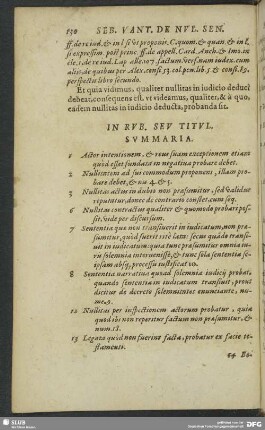 130 SEB. VANT. DE NVL. SEN.
ff. de re iud. & in l. si vt proponis, C. quom. & quan. & in l.
si expressim. post princ. ff. de appell. Card. Anch. & Imo. in
cle. 1. de re iud. Lap alle. 107. factum. Vers. nam iudex. cum
aliis, de quibus per Alex. cons. 15. col. pen. lib. 5. & cons. 89.
perspectis libro secundo.
Et quia vidimus, qualiter nullitas in iudicio deduci
debeat, consequens est, vt videamus, qualiter, & à quo,
eadem nullitas in iudicio deducta, probanda sit.
IN RVB. SEV TITVL.
SVMMARIA.
1 Actor intentionem, & reus suam exceptionem etiam
quòd esset fundata in negatiua probare debet.
2 Nullitatem ad sui commodum proponens, illam pro-
bare debet, & nu. 4. & 5.
3 Nullitas actus in dubio non præsumitur, sed Validus
reputatur donec de contrario constet. eam seq.
6 Nullitas contractus qualiter & quomodo probari pos-
sit. Vide per discursum.
7 Sententia que non transiuerit in iudicatum, non præ-
sumitur, quòd fuerit ritè lata: secus quādo transi-
uit in iudicatum: quia tunc præsumitur omnia iu-
ris solemnia interuenisse, & tunc sola sententia se-
risam absq; processu iustificat. 10.
8 Sententia narratiua quoad solemnia iudicij probat,
quando sententia in iudicatum transiuit, prout
dicitur de decreto solemnitates enunciante, nu-
me. 9.
12 Nullitas per inspectionem actorum probatur, quia
quòd ibi non reperitur factum non præsumitur, &
num. 18.
13 Legata quòd non fuerint facta, probatur ex facie te-
stamenti.
SLUB
DFG